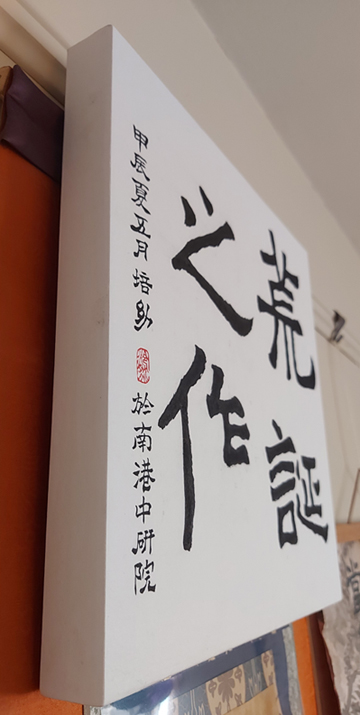 荒誕
之作
甲辰夏五月培
於南港中研院